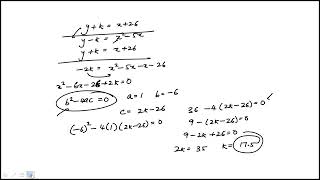 y+k = x+26
y-k = x²-5x
y+k = x+26
-2k = x²-5x-x-26
x²-6x-26+2k=0
b²-4ac=0
a=1 b=-6
c = 2k-26
(-6)²-4(1)(2k-26)=0
36-4(2k-26)=0
9-(2k-26)=0
9-2k+26=0
2k=35 k=17.5